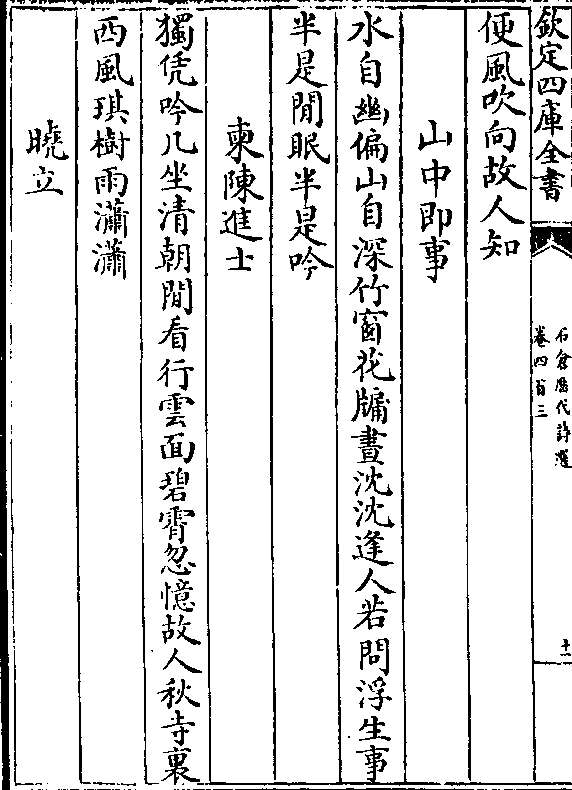 欽定四庫全書
石倉歷代詩選
卷四百三
十一
便風吹向故人知
山中即事
水自幽偏山自深竹窗花牖晝沈沈逢人若問浮生事
半是閒眠半是吟
柬陳進士
獨凭吟几坐清朝閒看行雲面碧霄忽憶故人秋寺裏
西風琪樹雨瀟瀟
曉立